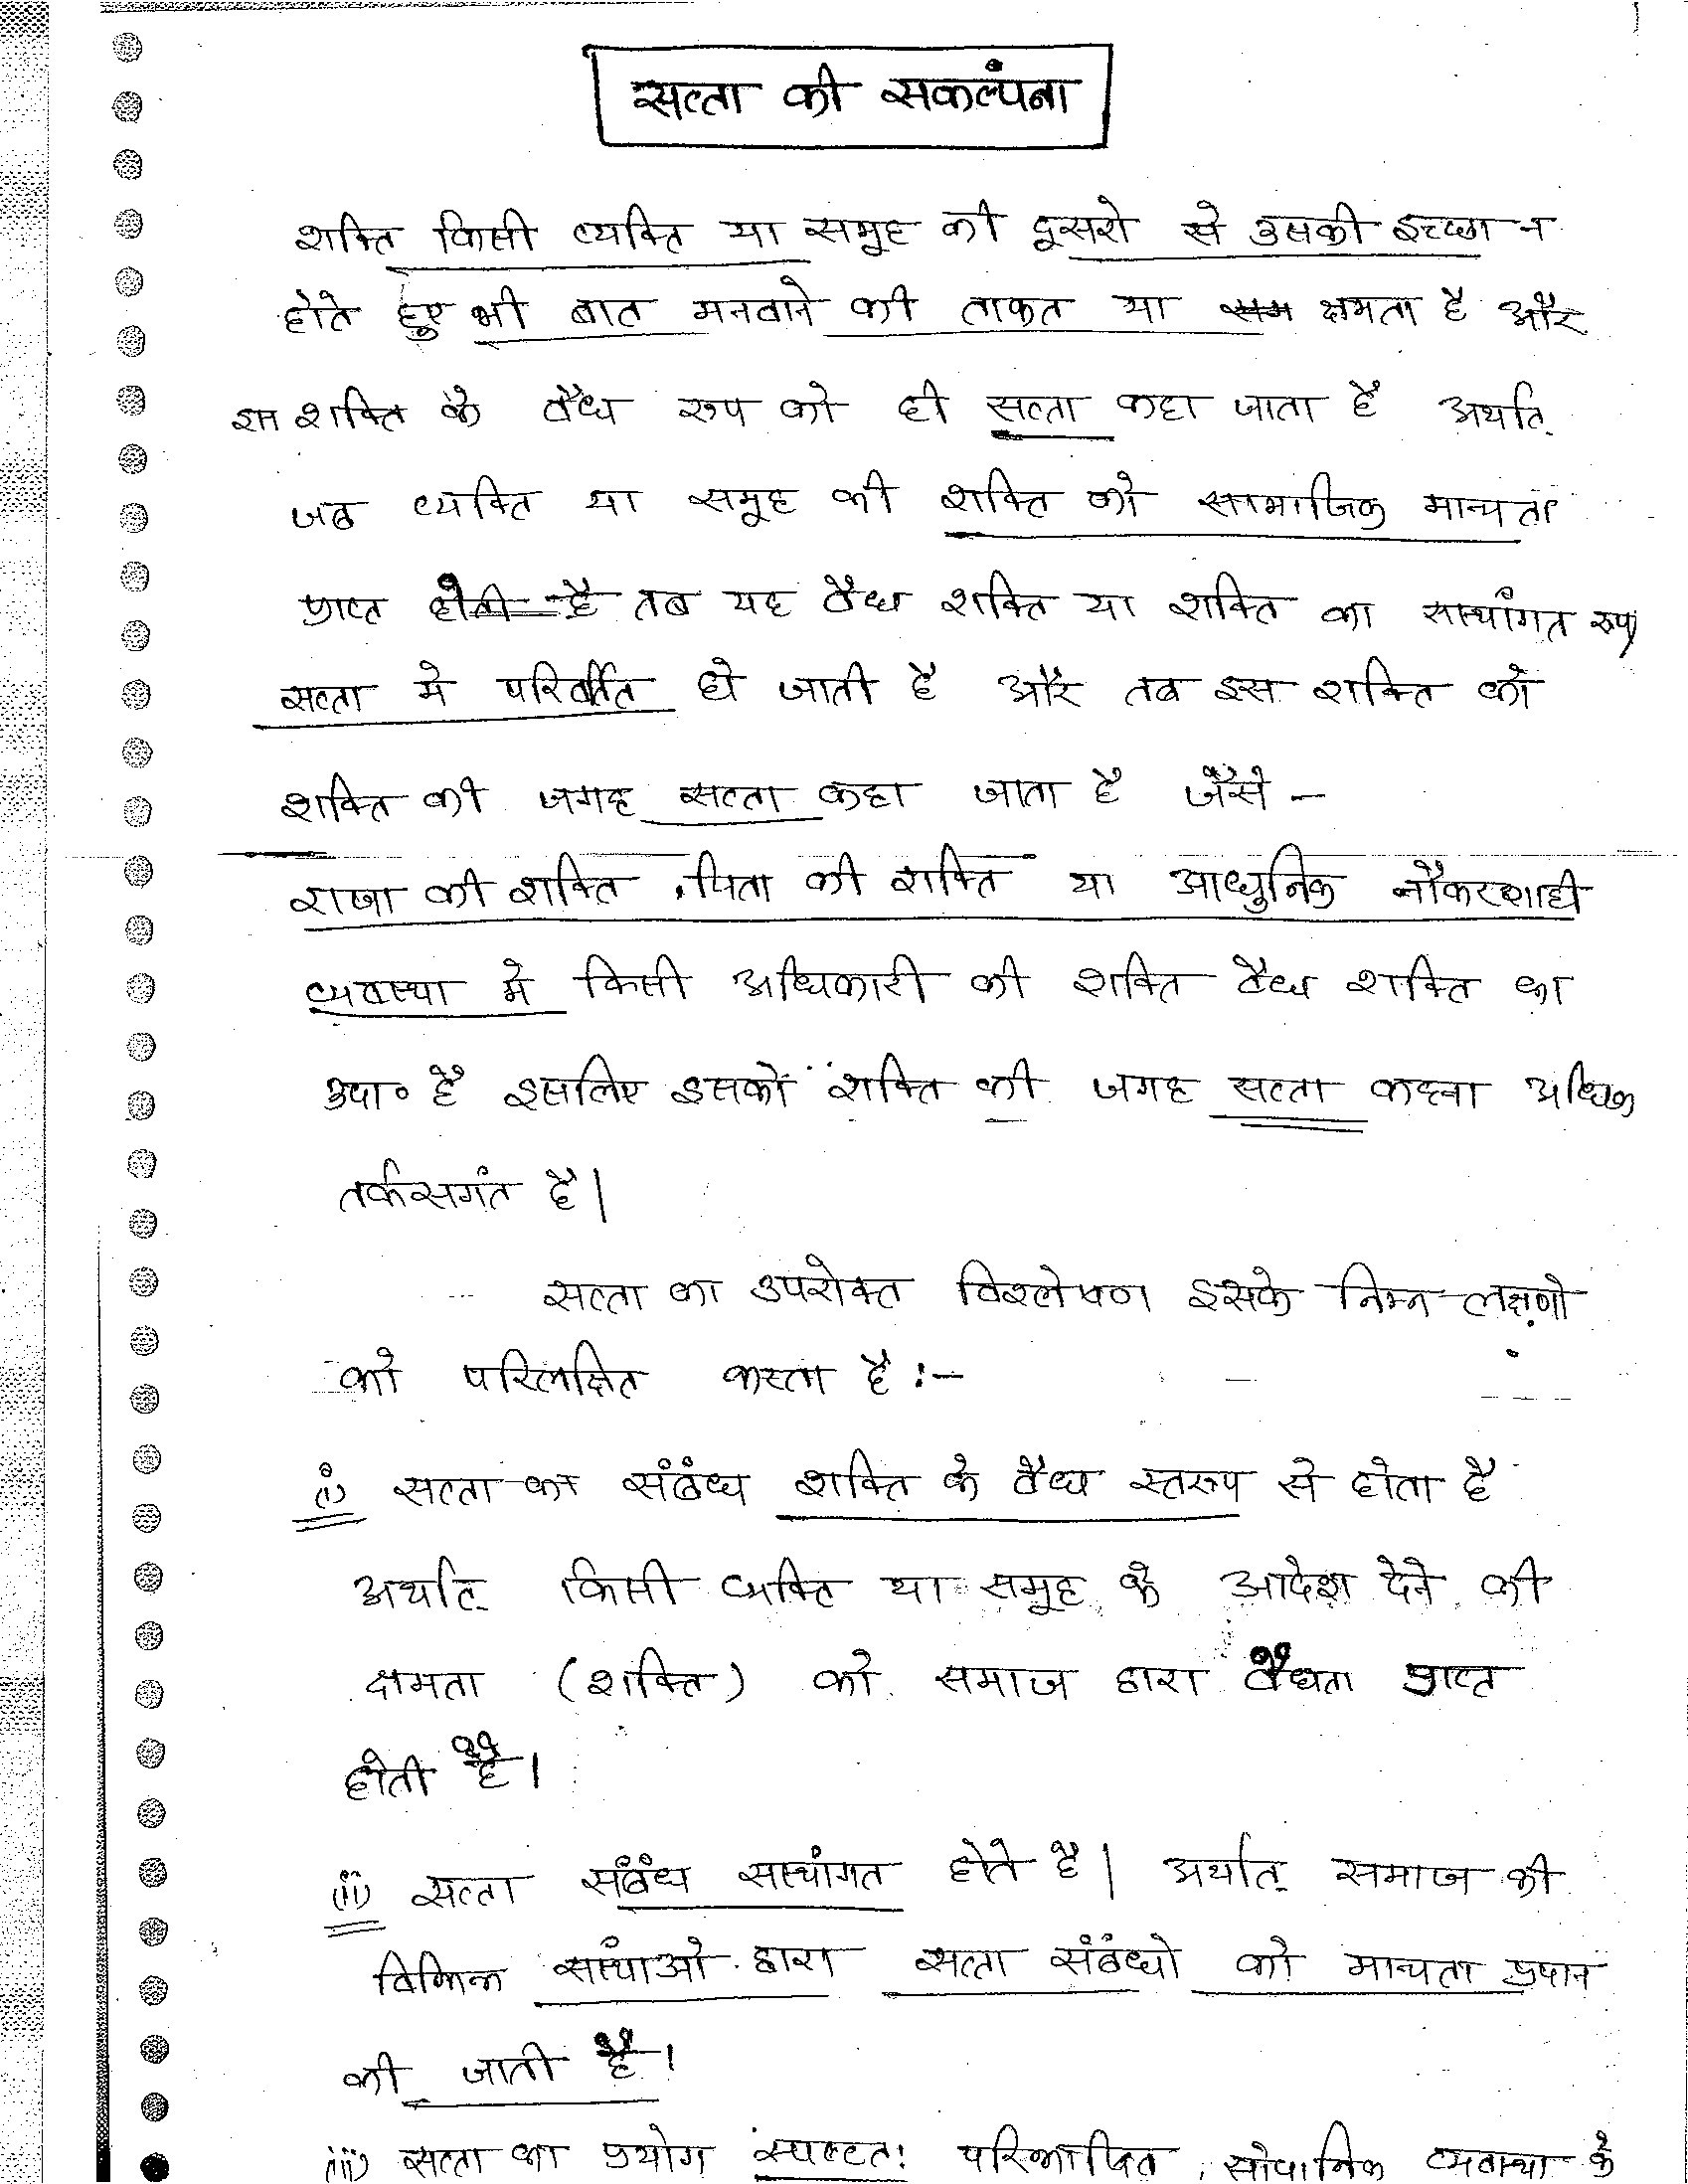 सत्ता की सकल्पंना
शक्ति किसी व्यक्ति या समूह की दूसरो से उसकी इच्छा न
होते हुए भी बात मनवाने की ताकत या क्षमता है और
शक्ति के वैध रूप को ही सत्ता कहा जाता है अर्थात्
जब व्यक्ति या समूह की शक्ति को सामाजिक मान्यता
प्राप्त होती है तब यह वैध शक्ति या शक्ति का सास्थांगत रूप
सत्ता मे परिवर्तित हो जाती है और तब इस शक्ति को
शक्ति की जगह सत्ता कहा जाता है जैसे –
राजा की शक्ति, पिता की शक्ति या आधुनिक नौकरशाही
व्यवस्था मे किसी अधिकारी की शक्ति वैध शक्ति का
उदा० है इसलिए इसको शक्ति की जगह सत्ता कहना अधिक
तर्कसगंत है।
सत्ता का उपरोक्त विश्लेषण इसके निम्न लक्षणो
को परिलक्षित करता है :–
(i) सत्ता का संबंध शक्ति के वैध स्तरूप से होता है
अर्थात् किसी व्यक्ति या समूह के आदेश देने की
क्षमता (शक्ति) को समाज द्वारा वैधता प्राप्त
होती है।
(ii) सत्ता संबंध सास्थांगत होते है। अर्थात् समाज की
विभिन्न सास्थांओ द्वारा सत्ता संबंधो को मान्यता प्रदान
की जाती है।
(iii) सत्ता का प्रयोग स्पष्टत: परिभाषित, सोपानिक व्यवस्था के